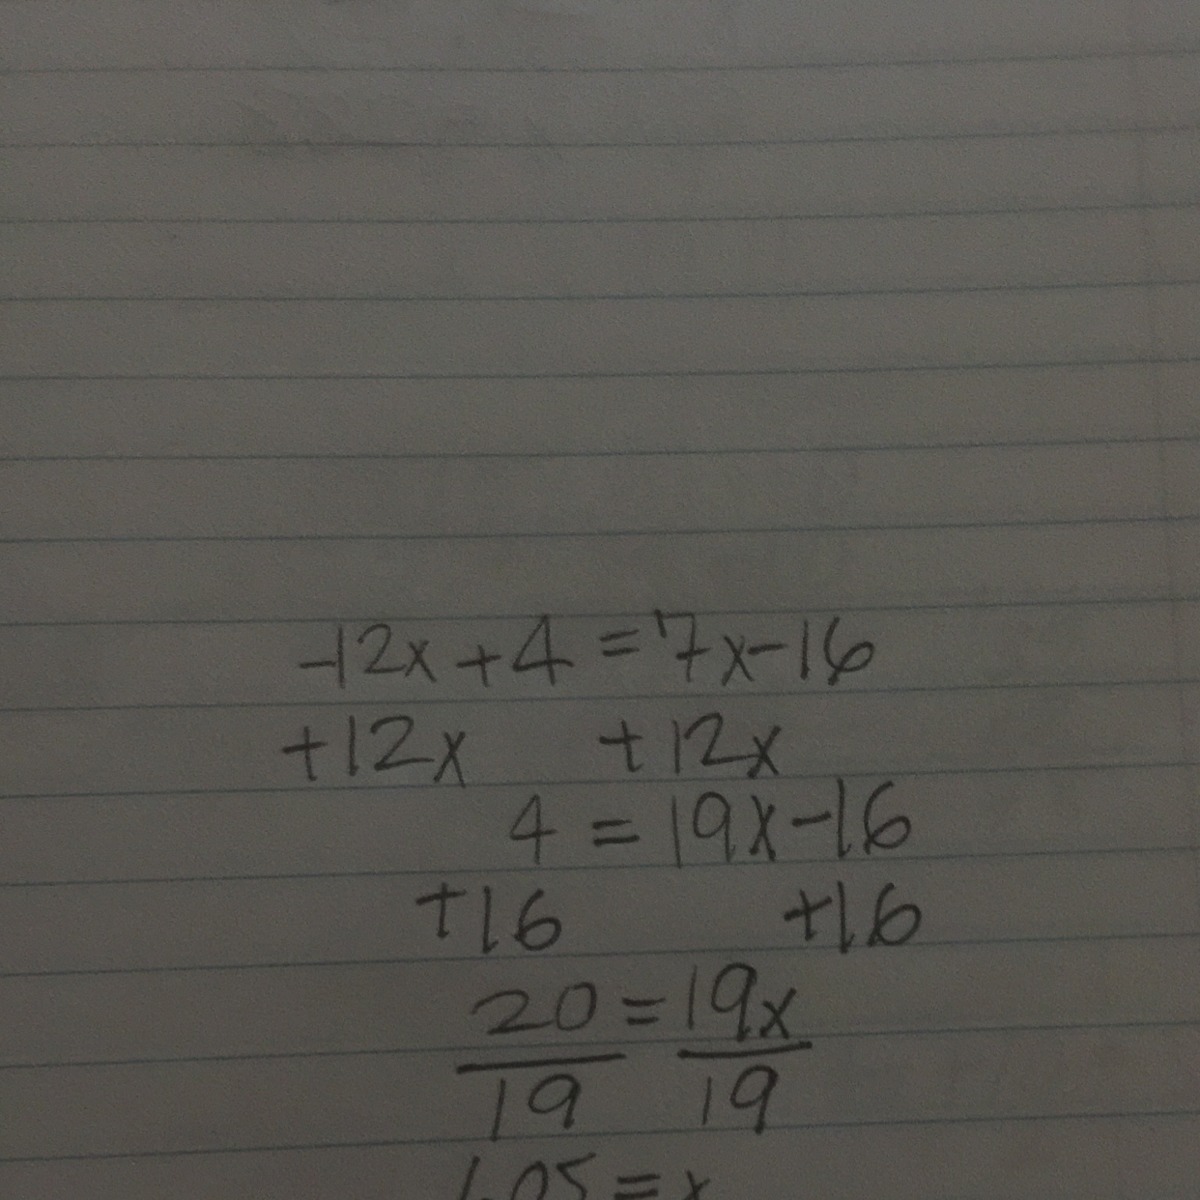 -12x + 4 = 7x - 16
+12x +12x
4 = 19x - 16
+16 +16
20 = 19x
19 19
1.05 = x